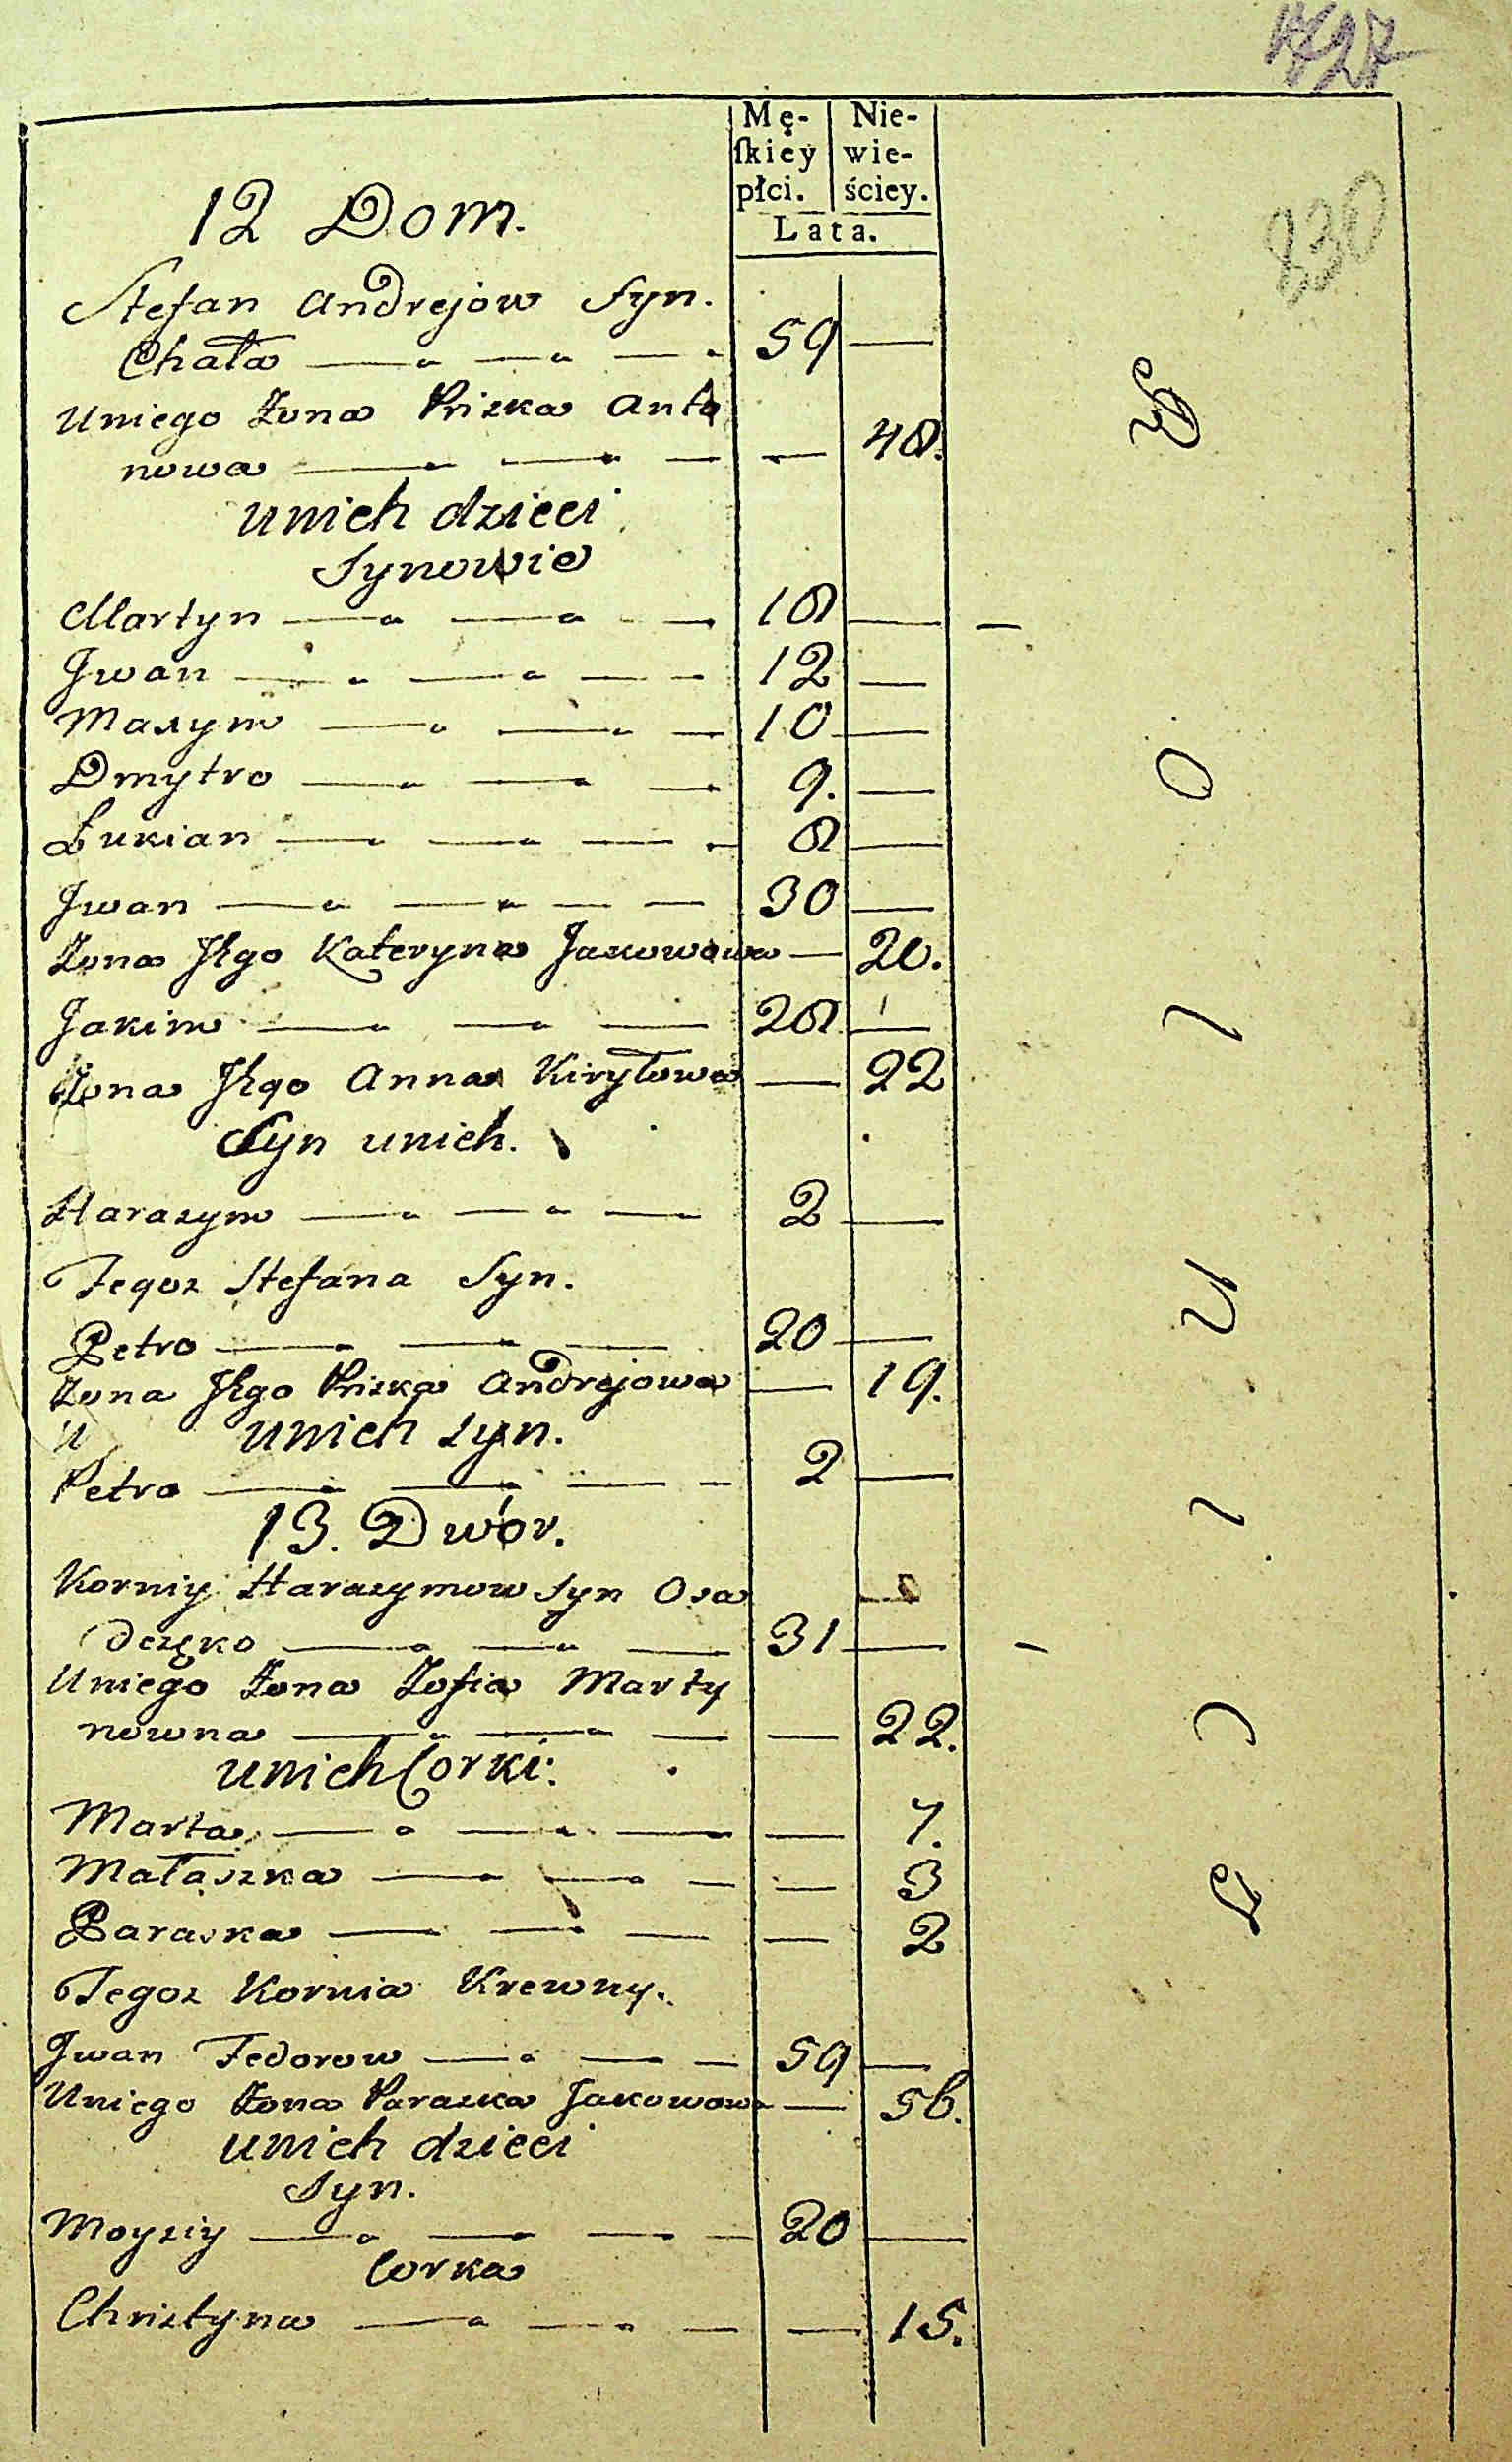 Mę- Nie-
ſkiey wie-
płci. ściey.
Lata.
830
12 Dom.
Stefan Andrejow Syn.
Chała — — — 59 —
Uniego Zona Priska Anto
nowa — — — — 48.
unich dzieci
Synowie
Martyn — — — 18 — —
Jwan — — — 12 —
Maxym — — — 10 —
Dmytro — — — 9. —
Łukian — — — 8 —
Jwan — — — 30 —
Zona Jego Kateryna Jakowowa — 20.
Jakim — — — 28 —
Zona Jego Anna Kiryłowa — 22
Syn unich.
Harasym — — — 2 —
Tegoz Stefana Syn.
Petro — — — 20 —
Zona Jego Priska Andrejowa — 19.
unich syn.
Petro — — — 2 —
13. Dwór.
Korniy Harasymow Syn Osa
deczko — — — 31 — —
Uniego Zona Zofia Marty
nowna — — — — 22.
unich Corki:
Marta — — — — 7.
Małaszka — — — — 3
Paraska — — — — 2
Tegoz Kornia Krewny.
Jwan Fedorow — — — 59 —
Uniego Zona Paraska Jakowowa — 56.
unich dzieci
Syn.
Moysiy — — — 20 —
Corka
Christyna — — — — 15.